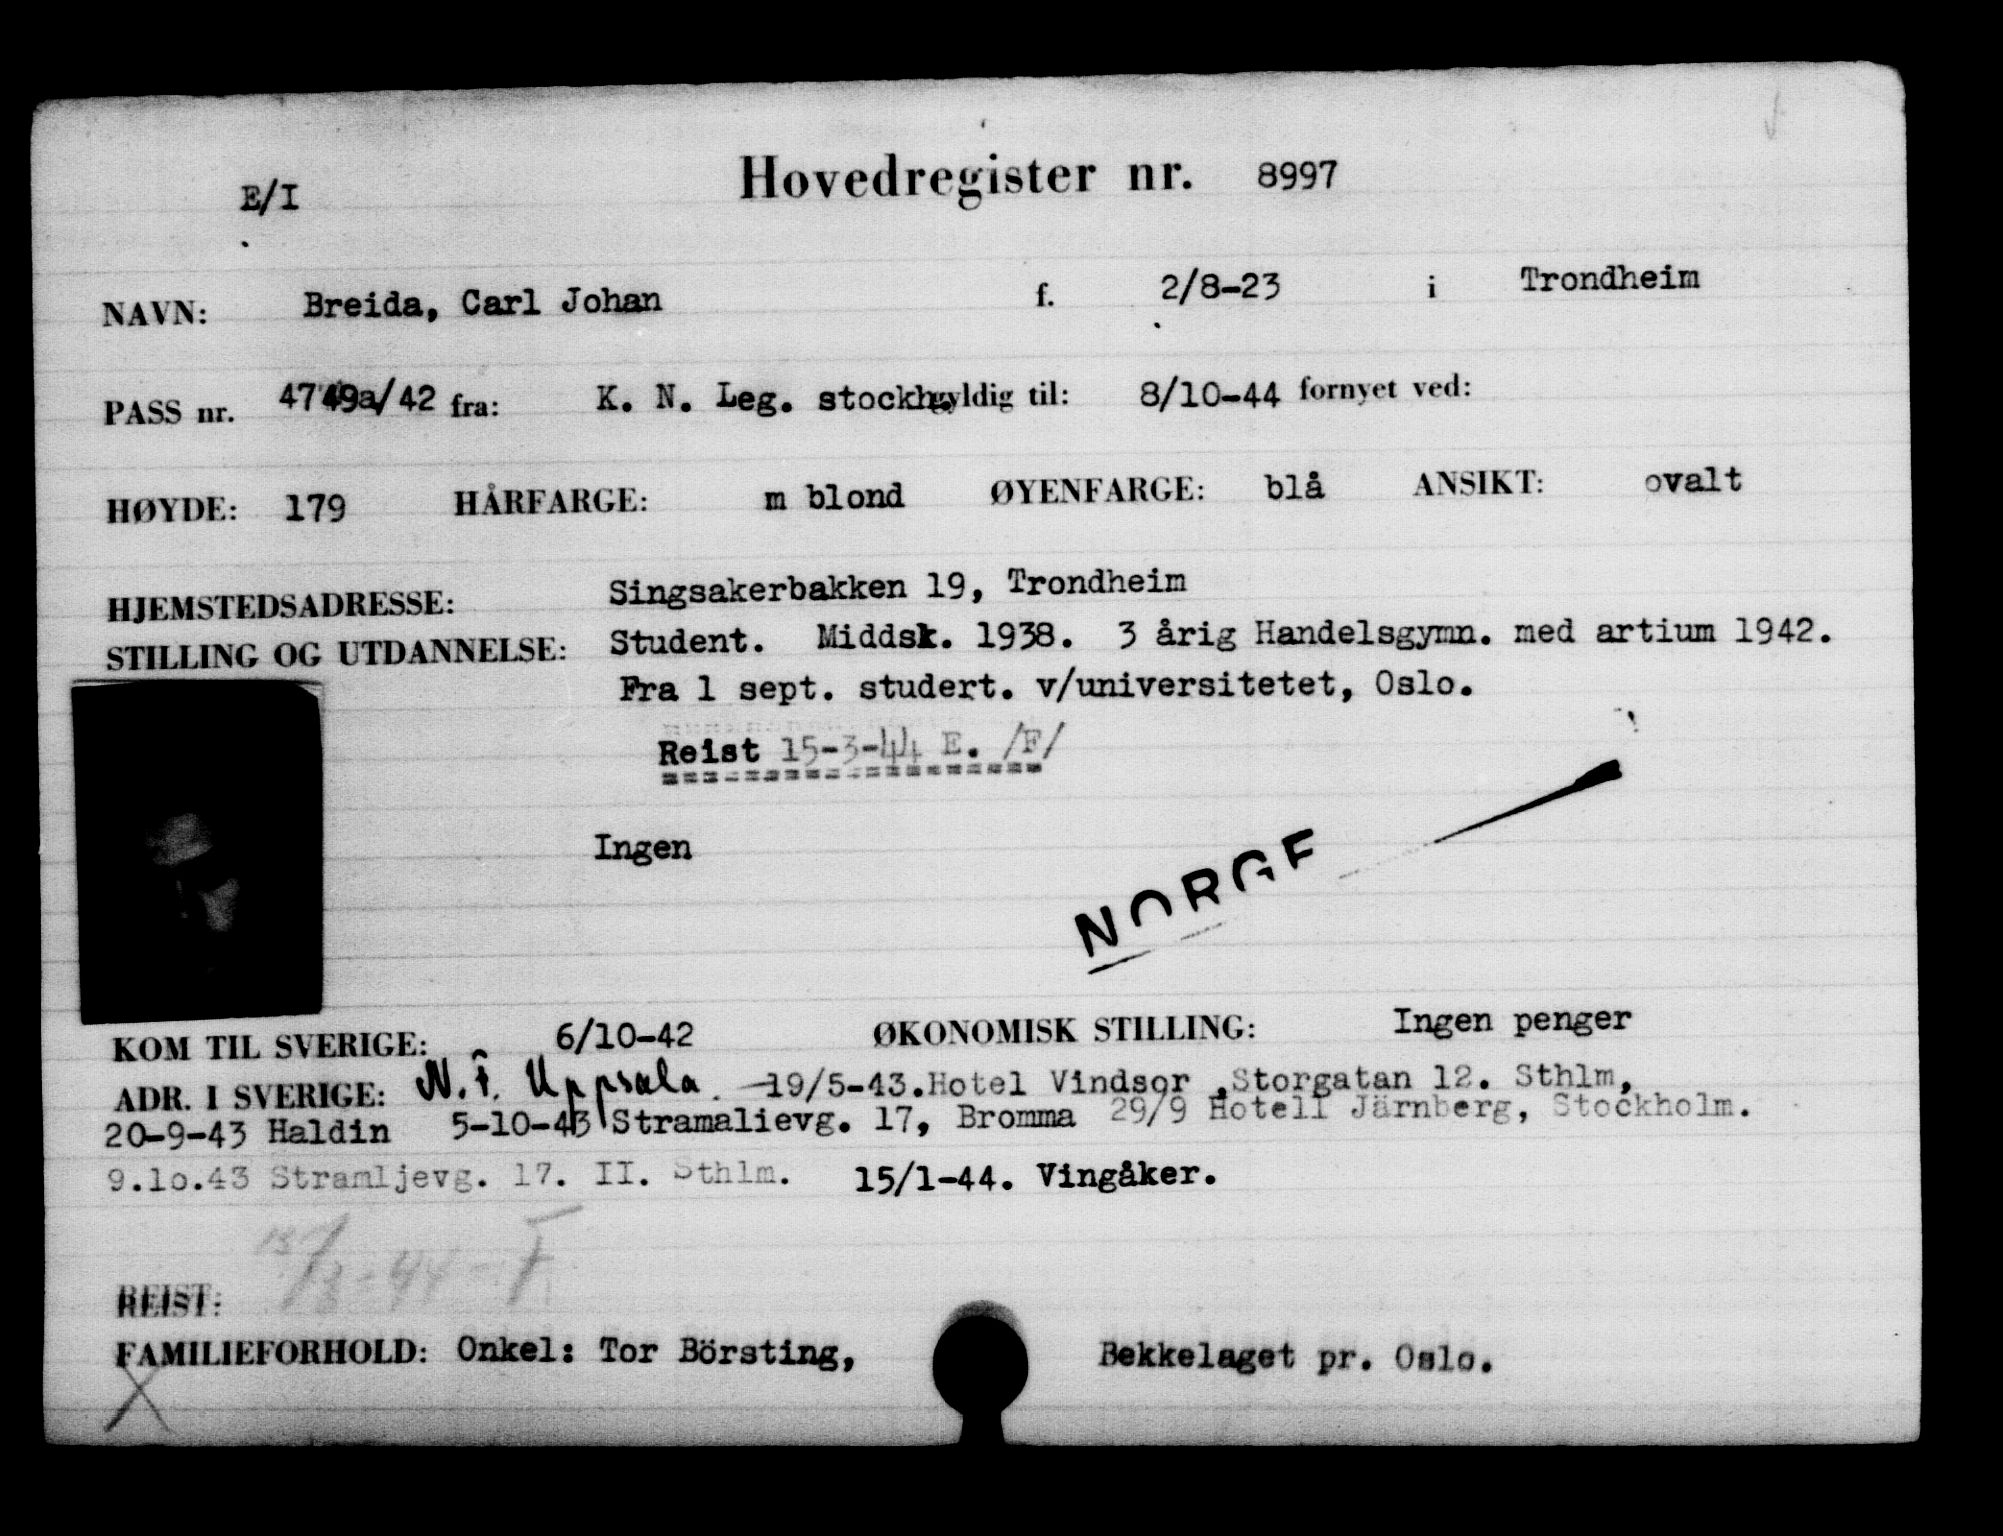 E/I
Hovedregister nr. 8997
NAVN: Breida, Carl Johan f. 2/8-23 i Trondheim
PASS nr. 4749a/42 fra: K. N. Leg. stockh. gyldig til: 8/10-44 fornyet ved:
HØYDE: 179 HÅRFARGE: m blond ØYENFARGE: blå ANSIKT: ovalt
HJEMSTEDSADRESSE: Singsakerbakken 19, Trondheim
STILLING OG UTDANNELSE: Student. Middsk. 1938. 3 årig Handelsgymn. med artium 1942.
Fra 1 sept. studert. v/universitetet, Oslo.
Reist 15-3-44 E. /F/
Ingen
NORGE
KOM TIL SVERIGE: 6/10-42 ØKONOMISK STILLING: Ingen penger
ADR. I SVERIGE: Uppsala. 19/5-43.Hotel Vindsor ,Storgatan 12. Sthlm,
20-9-43 Haldin 5-10-43 Stramalievg. 17, Bromma 29/9 Hotell Järnberg, Stockholm.
9.10.43 Stramljevg. 17. II. Sthlm. 15/1-44. Vingåker.
REIST:
FAMILIEFORHOLD: Onkel: Tor Börsting, Bekkelaget pr. Oslo.